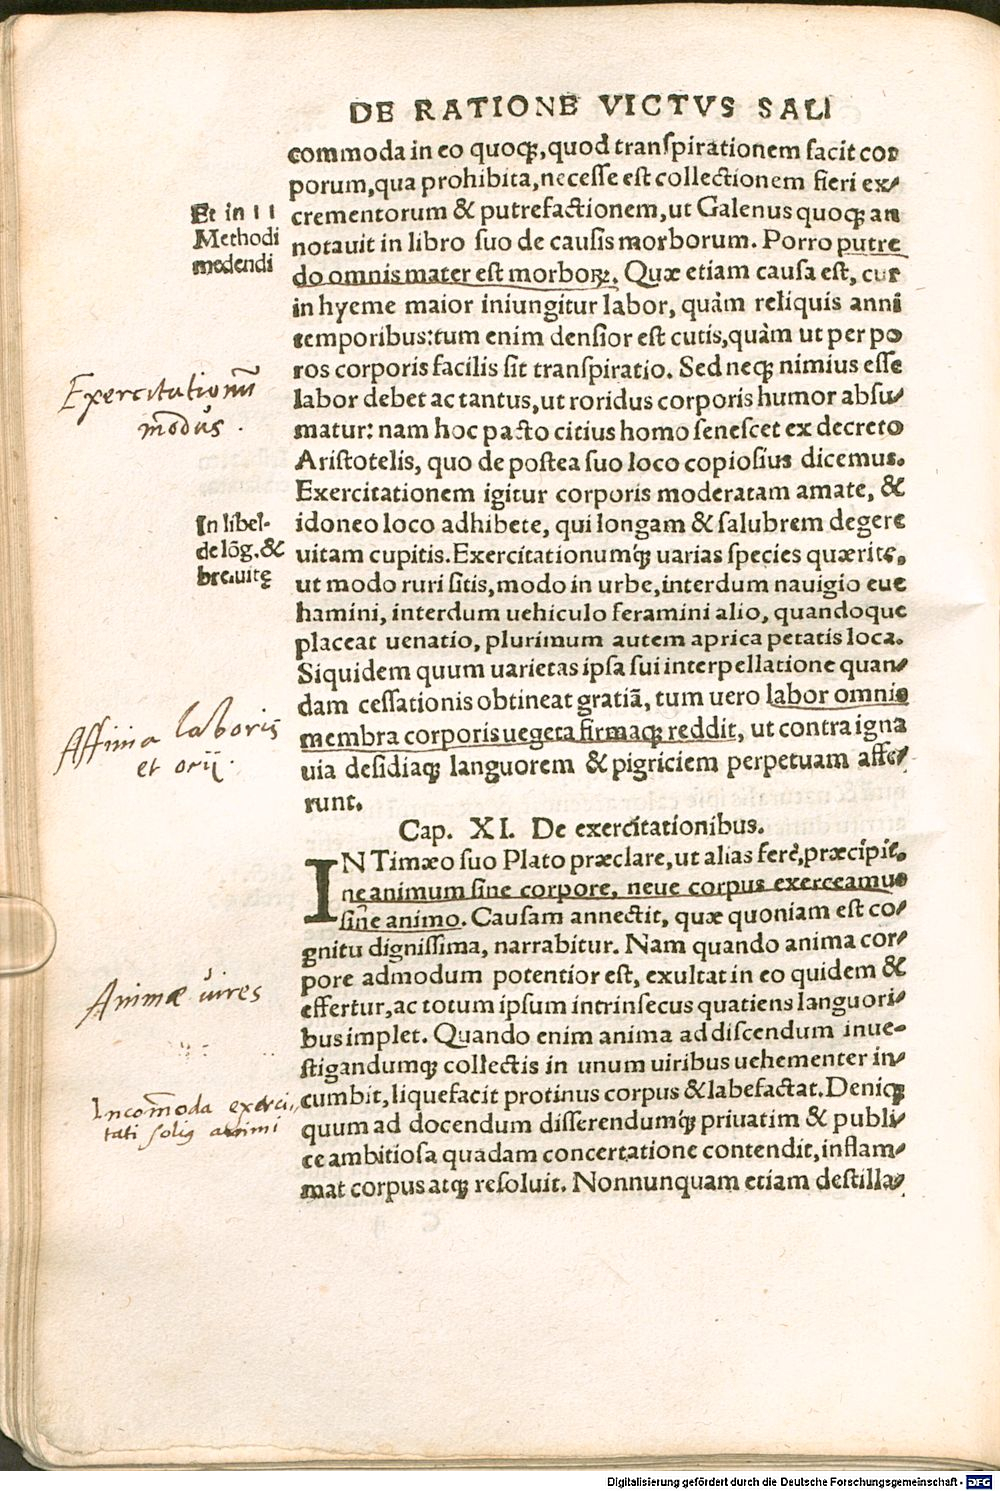 DE RATIONE VICTVS SALI
commoda in eo quoq;, quod transpirationem facit cor
porum, qua prohibita, necesse est collectionem fieri ex⸗
crementorum & putrefactionem, ut Galenus quoq; an
notauit in libro suo de causis morborum. Porro putre
do omnis mater est morboꝝ. Quæ etiam causa est, cur
in hyeme maior iniungitur labor, quàm reliquis anni
temporibus: tum enim densior est cutis, quàm ut per po
ros corporis facilis sit transpiratio. Sed neq; nimius esse
labor debet ac tantus, ut roridus corporis humor absu⸗
matur: nam hoc pacto citius homo senescet ex decreto
Aristotelis, quo de postea suo loco copiosius dicemus.
Exercitationem igitur corporis moderatam amate, &
idoneo loco adhibete, qui longam & salubrem degere
uitam cupitis. Exercitationumq́; uarias species quærite,
ut modo ruri sitis, modo in urbe, interdum nauigio eue
hamini, interdum uehiculo feramini alio, quandoque
placeat uenatio, plurimum autem aprica petatis loca.
Siquidem quum uarietas ipsa sui interpellatione quan⸗
dam cessationis obtineat gratiā, tum uero labor omnia
membra corporis uegeta firmaq; reddit, ut contra igna
uia desidiaq; languorem & pigriciem perpetuam affe⸗
runt.
Et in 11
Methodi
medendi
Exercitationū
modus.
In libel-
de lōg. &
breuitę
Affinia laboris
et ocij.
Cap. XI. De exercitationibus.
IN Timæo suo Plato præclare, ut alias ferè, præcipit,
ne animum sine corpore, neue corpus exerceamus
sine animo. Causam annectit, quæ quoniam est co⸗
gnitu dignissima, narrabitur. Nam quando anima cor⸗
pore admodum potentior est, exultat in eo quidem &
effertur, ac totum ipsum intrinsecus quatiens languori⸗
bus implet. Quando enim anima ad discendum inue⸗
stigandumq; collectis in unum uiribus uehementer in⸗
cumbit, liquefacit protinus corpus & labefactat. Deniq;
quum ad docendum disserendumq́; priuatim & publi⸗
ce ambitiosa quadam concertatione contendit, inflam⸗
mat corpus atq; resoluit. Nonnunquam etiam destilla⸗
Animæ uires
Incom̄oda exerci,
tati solius animi
Digitalisierung gefördert durch die Deutsche Forschungsgemeinschaft - DFG